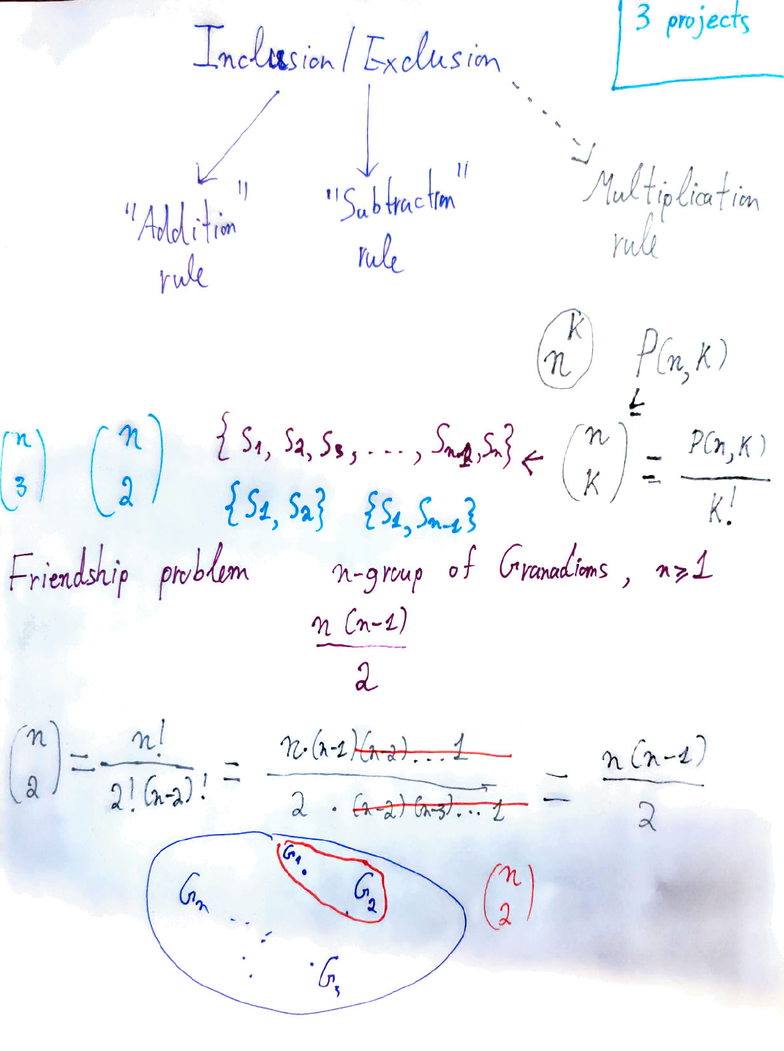 3 projects
Inclusion / Exclusion
"Addition" rule
"Subtraction" rule
Multiplication rule
n^k P(n,k)
(n 3) (n 2) {S1, S2, S3, ..., Sn-1, Sn} ← (n k) = P(n,k) / k!
{S1, S2} {S1, Sn-1}
Friendship problem n-group of Granadioms, n≥1
n(n-1) / 2
(n 2) = n! / 2!(n-2)! = n·(n-1)(n-2)...1 / 2·(n-2)(n-3)...1 = n(n-1) / 2
G1
Gn G2 (n 2)
G3